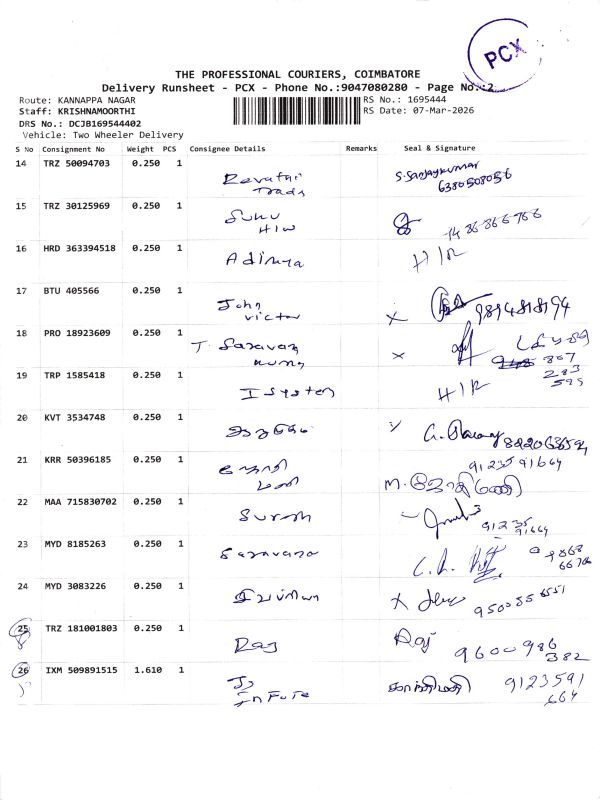 PCX
THE PROFESSIONAL COURIERS, COIMBATORE
Delivery Runsheet - PCX - Phone No.:9047080280 - Page No.:2
Route: KANNAPPA NAGAR
RS No.: 1695444
Staff: KRISHNAMOORTHI
RS Date: 07-Mar-2026
DRS No.: DCJB169544402
Vehicle: Two Wheeler Delivery
S No Consignment No Weight PCS Consignee Details Remarks Seal & Signature
14 TRZ 50094703 0.250 1 Revathi S.Sanjaykumar
Trads 6380508056
15 TRZ 30125969 0.250 1
16 HRD 363394518 0.250 1 H/R
17 BTU 405566 0.250 1 John
Victor X 9894818194
18 PRO 18923609 0.250 1 T. Saravan
Kumar X
19 TRP 1585418 0.250 1 I System H/R
20 KVT 3534748 0.250 1
21 KRR 50396185 0.250 1 ஜோதி 9123591664
மணி M. ஜோதிமணி
22 MAA 715830702 0.250 1 Suresh 91235
91664
23 MYD 8185263 0.250 1 Saravana
24 MYD 3083226 0.250 1 X
25 TRZ 181001803 0.250 1 Raj Raj 9600986
382
26 IXM 509891515 1.610 1 காந்திமதி 9123591
664